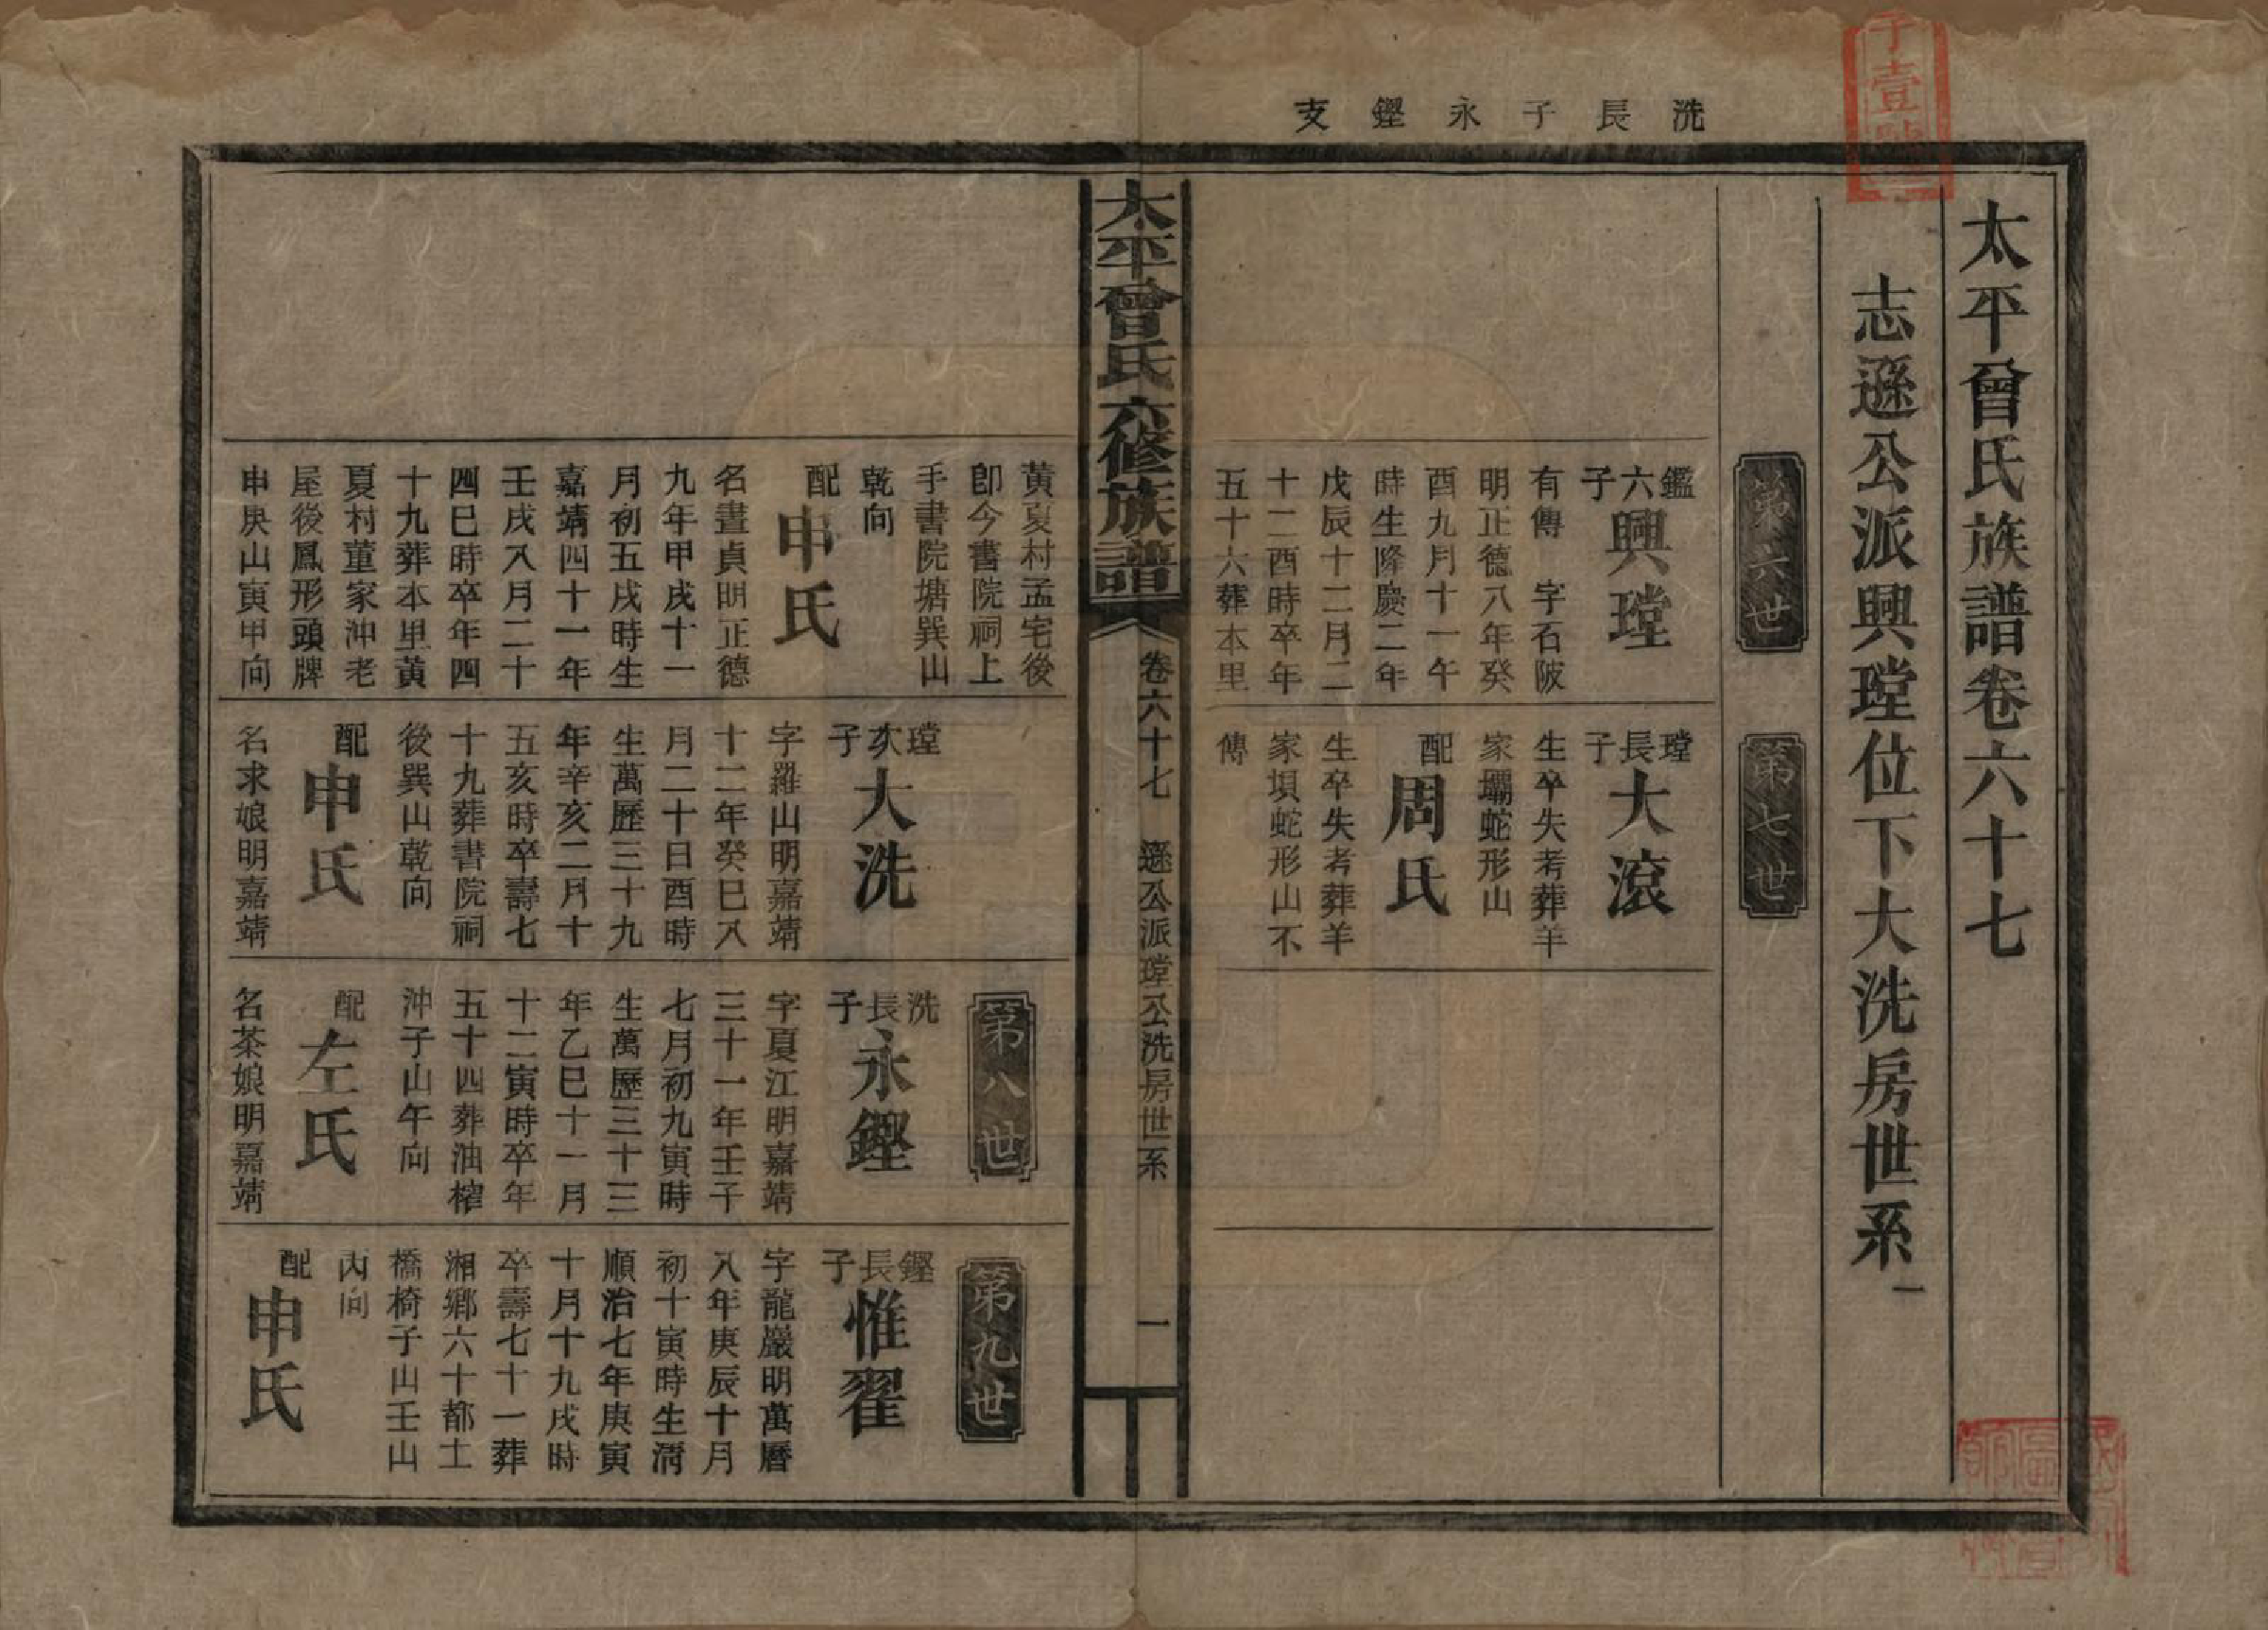 洗長子永鏗支
太平曾氏族譜卷六十七
志遜公派興瑝位下大洗房世系一
第六世
鑑六子
興瑝
有傳　字石陂
明正德八年癸
酉九月十一午
時生隆慶二年
戊辰十二月二
十二酉時卒年
五十六葬本里
第七世
瑝長子
大滾
生卒失考葬羊
家壩蛇形山
配
周氏
生卒失考葬羊
家垻蛇形山不
傳
太平曾氏六修族譜
卷六十七
遜公派瑝公洗房世系
一
黃夏村孟宅後
卽今書院祠上
手書院塘巽山
乾向
配
申氏
名晝貞明正德
九年甲戌十一
月初五戌時生
嘉靖四十一年
壬戌八月二十
四巳時卒年四
十九葬本里黃
夏村董家沖老
屋後鳳形頭牌
申庚山寅甲向
瑝次子
大洗
字羅山明嘉靖
十二年癸巳八
月二十日酉時
生萬歷三十九
年辛亥二月十
五亥時卒壽七
十九葬書院祠
後巽山乾向
配
申氏
名求娘明嘉靖
第八世
洗長子
永鏗
字夏江明嘉靖
三十一年壬子
七月初九寅時
生萬歷三十三
年乙巳十一月
十二寅時卒年
五十四葬油榨
沖子山午向
配
左氏
名茶娘明嘉靖
第九世
鏗長子
惟翟
字龍巖明萬曆
八年庚辰十月
初十寅時生淸
順治七年庚寅
十月十九戌時
卒壽七十一葬
湘鄉六十都土
橋椅子山壬山
丙向
配
申氏